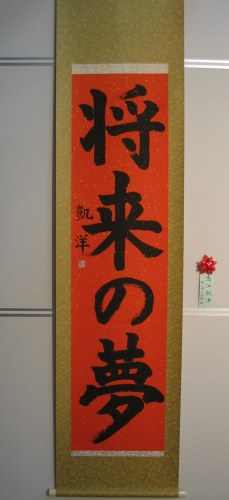 将来の夢
凱洋